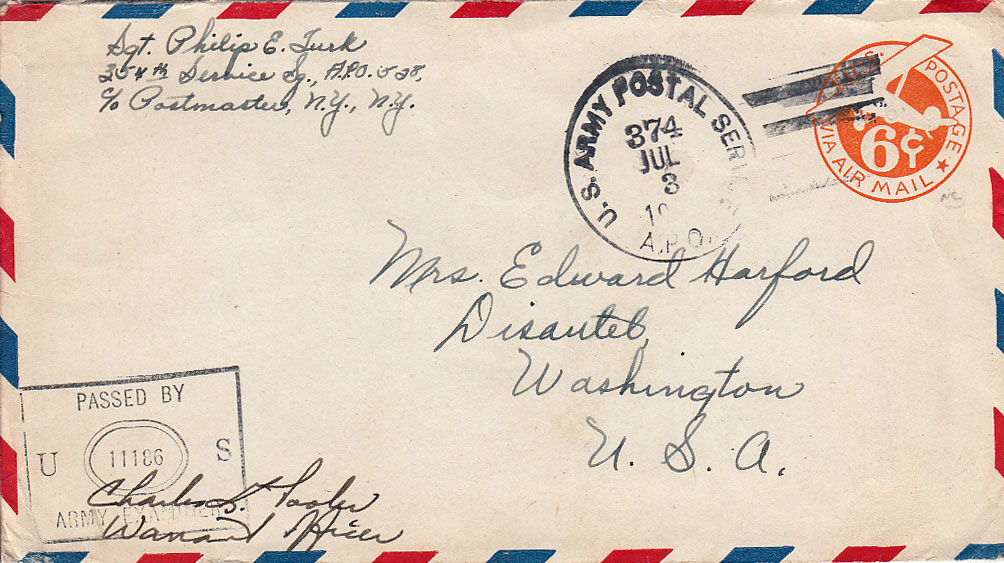 Sgt. Philip E. Turk
354th Service Sq., A.P.O. 528,
c/o Postmaster, N.Y., N.Y.
U.S. ARMY POSTAL SERVICE
374
JUL
3
A.P.O.
U.S. POSTAGE
6¢
VIA AIR MAIL
Mrs. Edward Harford
Disautel,
Washington
U. S. A.
PASSED BY
U 11186 S
ARMY EXAMINER
Charles
Warrant Officer